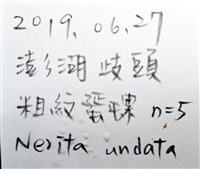 2019. 06. 27
澎湖 歧頭
粗紋蜑螺 n=5
Nerita undata